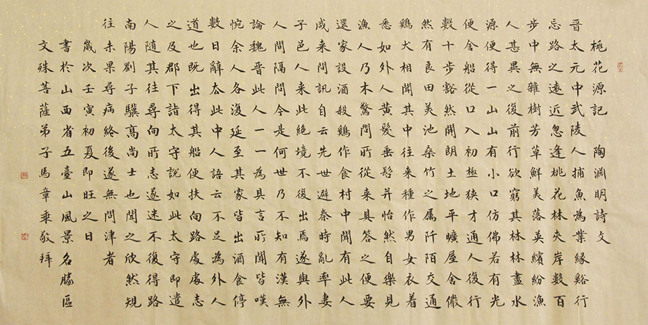 桃花源記 陶淵明詩文
晉太元中武陵人捕魚為業緣谿行
忘路之遠近忽逢桃花林夾岸數百
步中無雜樹芳草鮮美落英繽紛漁
人甚異之復前行欲窮其林林盡水
源便得一山山有小口仿佛若有光
便舍船從口入初極狹才通人復行
數十步豁然開朗土地平曠屋舍儼
然有良田美池桑竹之屬阡陌交通
鷄犬相聞其中往來種作男女衣着
悉如外人黃髮垂髫并怡然自樂見
漁人乃大驚問所從來具答之便要
還家設酒殺鷄作食村中聞有此人
咸來問訊自云先世避秦時亂率妻
子邑人來此絕境不復出焉遂與外
人間隔問今是何世乃不知有漢無
論魏晉此人一一為具言所聞皆嘆
惋余人各復延至其家皆出酒食停
數日辭去此中人語云不足為外人
道也既出得其船便扶向路處處志
之及郡下詣太守說如此太守即遣
人隨其往尋向所志遂迷不復得路
南陽劉子驥高尚士也聞之欣然規
往未果尋病終後遂無問津者
歲次壬寅初夏即旺之日
書於山西省五臺山風景名勝區
文殊菩薩弟子馬章乘敬拜